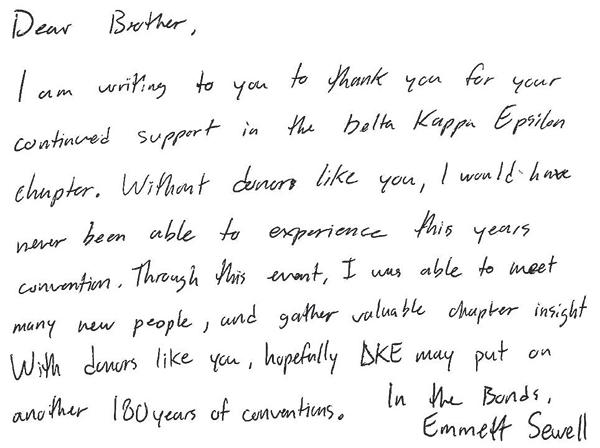 Dear Brother,
I am writing to you to thank you for your
continued support in the Delta Kappa Epsilon
chapter. Without donors like you, I would have
never been able to experience this years
convention. Through this event, I was able to meet
many new people, and gather valuable chapter insight
With donors like you, hopefully DKE may put on
another 180 years of conventions. In the Bonds,
Emmett Sewell